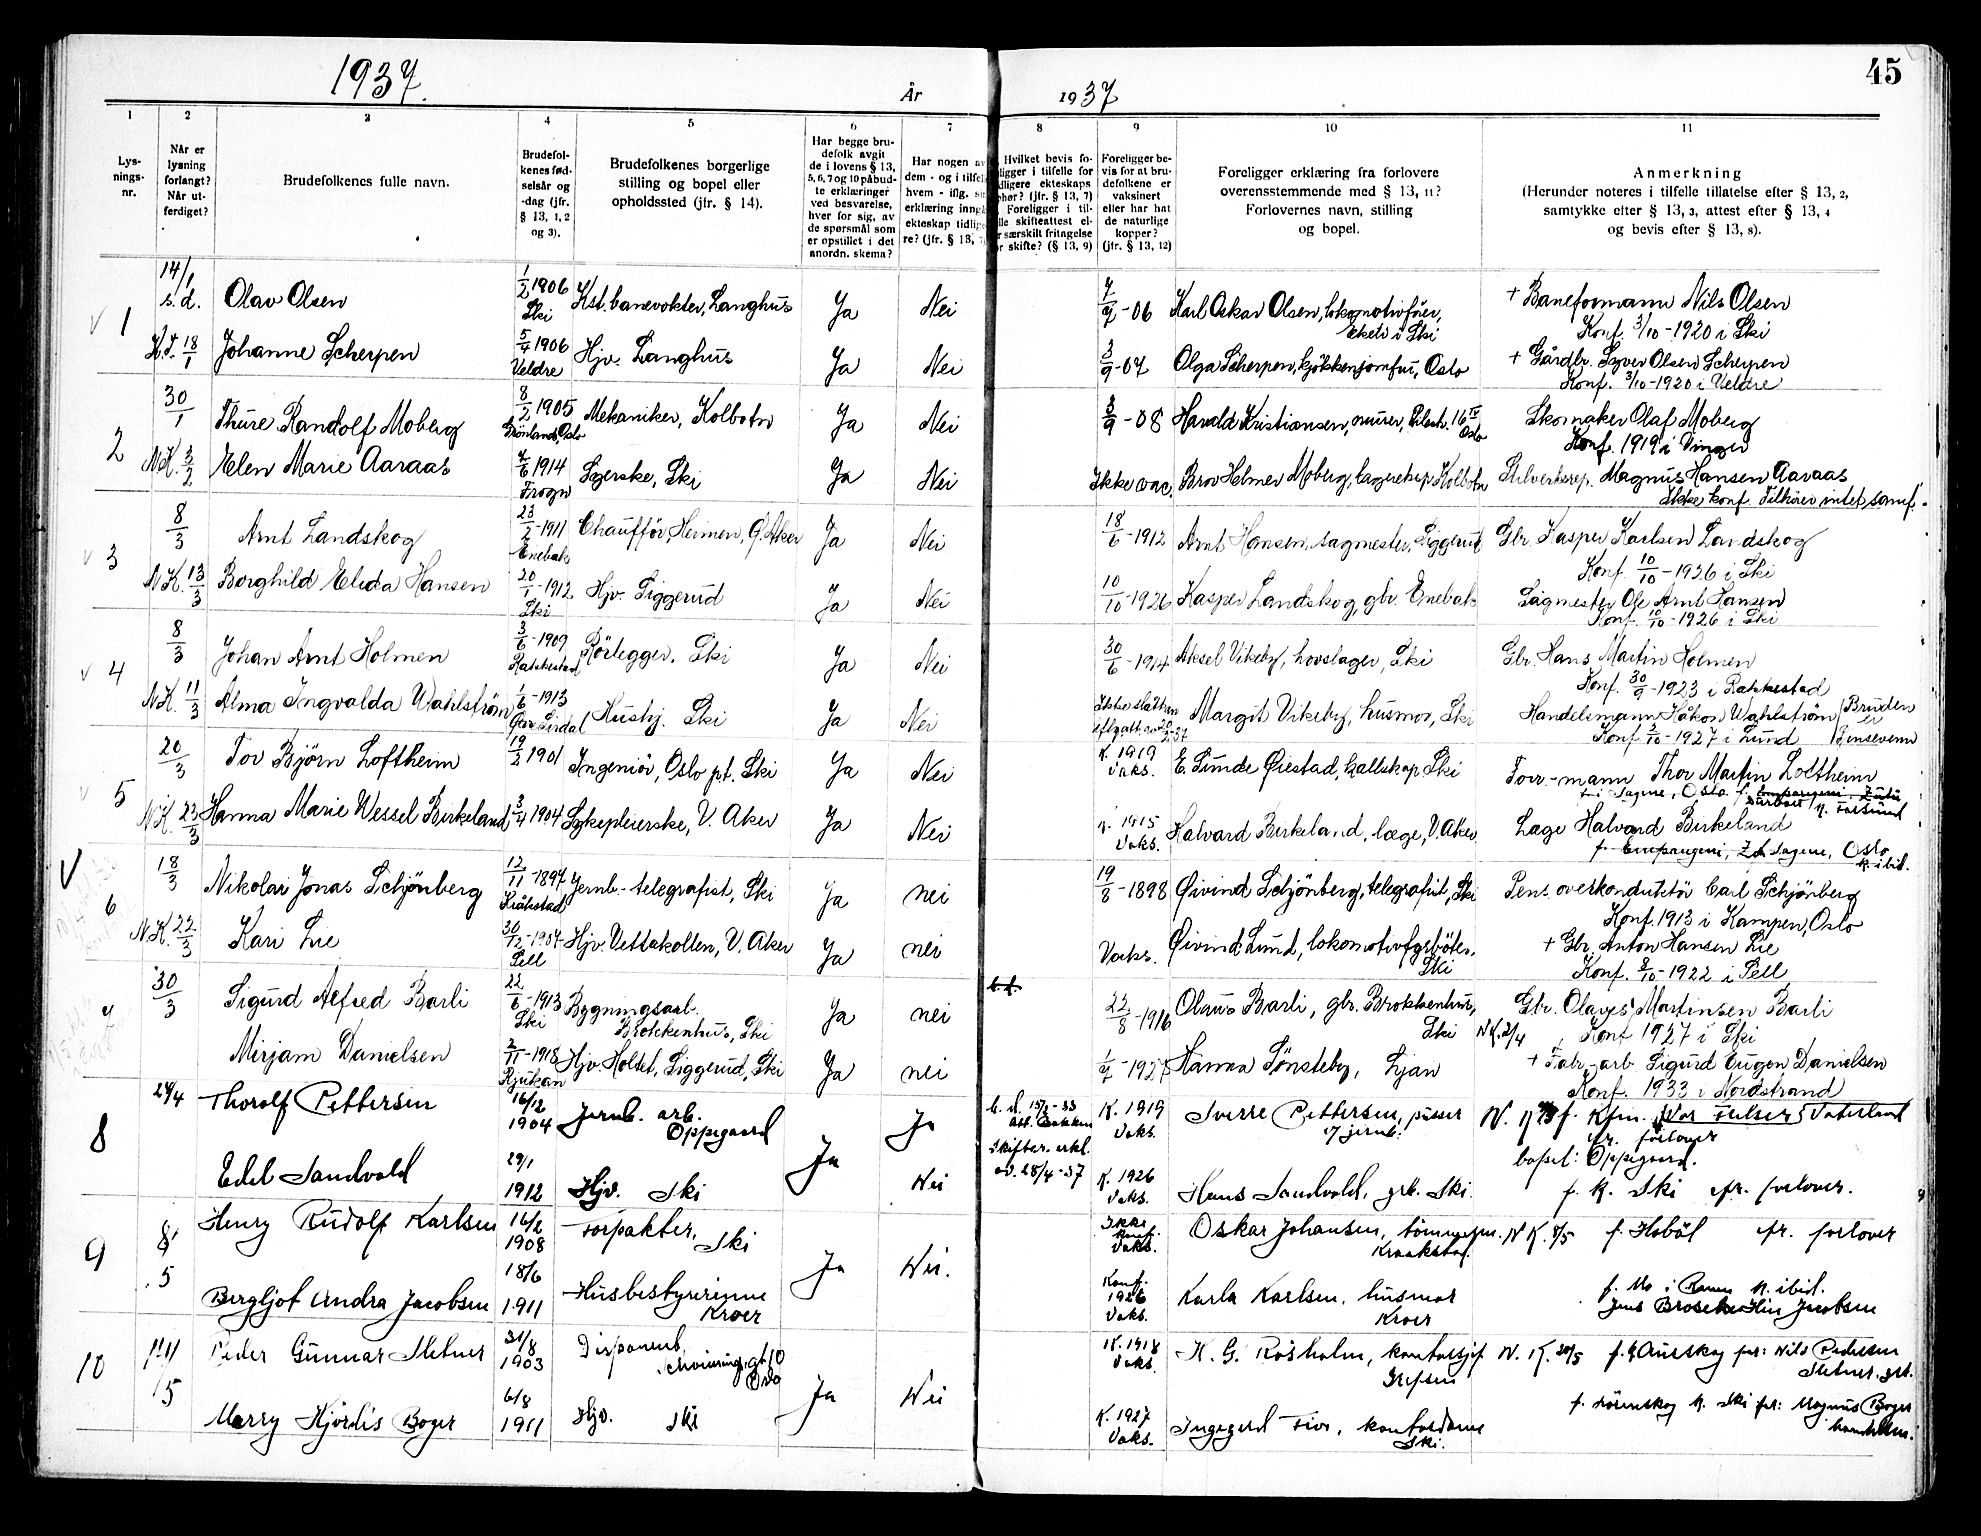 1937.
År
1937
45
1
2
3
4
5
6
7
8
9
10
11
Lys-
nings-
nr.
Når er
lysning
forlangt?
Når ut-
ferdiget?
Brudefolkenes fulle navn.
Brudefol-
kenes fød-
selsår og
-dag (jfr.
§ 13, 1, 2
og 3).
Brudefolkenes borgerlige
stilling og bopel eller
opholdssted (jfr. § 14).
Har begge bru-
defolk avgit
de i lovens § 13,
5, 6, 7 og 10 påbud-
te erklæringer
ved besvarelse,
hver for sig, av
de spørsmål som
er opstillet i det
anordn. skema?
Har nogen av
dem - og i tilfel
hvem - iflg. si
erklæring inng
ekteskap tidlig
re? (jfr. § 13, 7)
Hvilket bevis fo-
ligger i tilfelle for
dligere ekteskaps
phør? (jfr. § 13, 7)
Foreligger i til-
lle skifteattest el-
r særskilt fritagelse
r skifte? (§ 13, 9)
Foreligger be-
vis for at bru-
defolkene er
vaksinert
eller har hat
de naturlige
kopper?
(jfr. § 13, 12)
Foreligger erklæring fra forlovere
overensstemmende med § 13, 11?
Forlovernes navn, stilling
og bopel.
Anmerkning
(Herunder noteres i tilfelle tillatelse efter § 13, 2,
samtykke efter § 13, 3, attest efter § 13, 4
og bevis efter § 13, 8).
1 14/1 s.d. Olav Olsen 1/2 1906 Ski Kst. banevokter, Langhus Ja Nei 7/7-06 Karl Oskar Olsen, lokomotivfører, Eketv. i Ski + Baneformann Nils Olsen
Konf. 3/10-1920 i Ski
K.T. 18/1 Johanne Scherpen 5/4 1906 Veldre Hjv. Langhus Ja Nei 3/9-07 Olga Scherpen, kjøkkenjomfru, Oslo + Gårdbr. Syver Olsen Scherpen
Konf. 3/10-1920 i Veldre
2 30/1 Thure Randolf Moberg 8/2 1905 Grönland, Oslo Mekaniker, Kolbotn Ja Nei 3/9-08 Harald Kristiansen, murer, Pilestr. 16 IV Oslo Skomaker Olaf Moberg
Konf. 1919 i Vinger
N.K. 3/2 Elen Marie Aaraas 4/6 1914 Frogn Syerske, Ski Ja Nei Ikke vac. Brov Helmer Moberg, lagereksp. Kolbotn Stilverksrep. Magnus Hansen Aaraas
Ikke konf. Tilhörer intet samf.
3 8/3 Arnt Landskog 23/2-1911 Enebak Chaufför, Heimen, Ö. Aker Ja Nei 18/6-1912 Arnt Hansen, sagmester, Siggerud Gbr. Kasper Karlsen Landskog
Konf. 10/10-1926 i Ski
N.K. 13/3 Borghild Elida Hansen 20/1-1912 Ski Hjv. Siggerud Ja Nei 10/10-1926 Kasper Landskog, gbr. Enebak Sagmester Ole Arnt Hansen
Konf. 10/10-1926 i Ski
4 8/3 Johan Arnt Holmen 3/6-1909 Rakkestad Rörlegger, Ski Ja Nei 30/6-1914 Aksel Vikeby, hovslager, Ski Gbr. Hans Martin Holmen
Konf. 30/9-1923 i Rakkestad
N.K. 11/3 Alma Ingvalda Wahlström 1/6-1913 Hushj. Ski Ja Nei Margit Vikeby, husmor, Ski Handelsmann Håkon Wahlström Bruden er
Konf. 2/10-1927 i Lund
5 20/3 Tor Björn Loftheim 19/2 1901 Ingeniör, Oslo pt. Ski Ja Nei K. 1919 Vaks. E. Sunde Örestad, Ski Thor Martin Loftheim
N.K. 23/3 Hanna Marie Wessel Birkeland 3/4 1904 Sykepleierske, V. Aker Ja Nei K. 1915 Vaks. Halvard Birkeland, læge, V. Aker Læge Halvard Birkeland
Sagene, Oslo
K. ibid.
6 18/3 Nikolai Jonas Schjönberg 12/11-1897 Kråkstad Jernb.-telegrafist, Ski Ja nei 19/8-1898 Öivind Schjönberg, telegrafist, Ski Pens. overkonduktör Carl Schjönberg
Konf. 1913 i Kampen, Oslo
N.K. 22/3 Kari Lie 30/12-1907 Sell Hjv. Vettakollen, V. Aker Ja nei Vaks. Öivind Lund, lokomotivfyrböter, Ski + Gbr. Anton Hansen Lie
Konf. 8/10-1922 i Sell
7 30/3 Sigurd Alfred Barli 22/6-1913 Ski Bygningsarb. Brokkenhus, Ski Ja nei 22/8-1916 Olaus Barli, gbr. Brokkenhus, Ski N.K. 2/4 Gbr. Olaus Martinsen Barli
Konf 1927 i Ski
Mirjam Danielsen 2/11-1918 Rjukan Hjv. Holtet, Siggerud, Ski Ja nei 1/7-1927 Hanna Tönsteby, Ljan + Fabr.-arb. Sigurd Eugen Danielsen
Konf. 1933 i Nordstrand
8 28/4 Thorolf Pettersen 16/12 1904 Jernb. arb. Oppegaard Ja Ja Skifter. erkl. av. 28/4-37 K. 1919 Vaks. Sverre Pettersen, pusser v/jernb. Vaterland
fr. forlover
bopel: Oppegaard.
Edel Sandvold 29/1 1912 Hjv. Ski Nei K. 1926 Vaks. Hans Sandvold, grb. Ski. f. K. Ski fr. forlover.
9 8/5 Henry Rudolf Karlsen 16/2 1908 Forpakter, Ski Ja Nei. Ikke konf. Vaks. Oskar Johansen, tömmerm. Kraakstad. N.K. 8/5 f. Hobøl fr. forlover
Bergljot Andra Jacobsen 18/6 1911 Husbestyrerinne Kroer Konf. 1926 Vaks. Karla Karlsen, husmor Kroer f. Mo i Rana K. ibid.
Jacobsen
10 11/5 Peder Gunnar Sletner 31/8 1903 Disponent, Oslo Ja Nei K. 1918 Vaks. K. G. Rösholm, kontorsjef Grefsen N. K. 20/5 f. Aurskog fr: Nils Pedersen
Sletner, grb.
Merry Hjördis Boger 6/8 1911 Hjv. Ski K. 1927 Vaks. Ingegerd Five, kontordame Ski. f. Lörenskog K. Ski fr: Magnus Boger